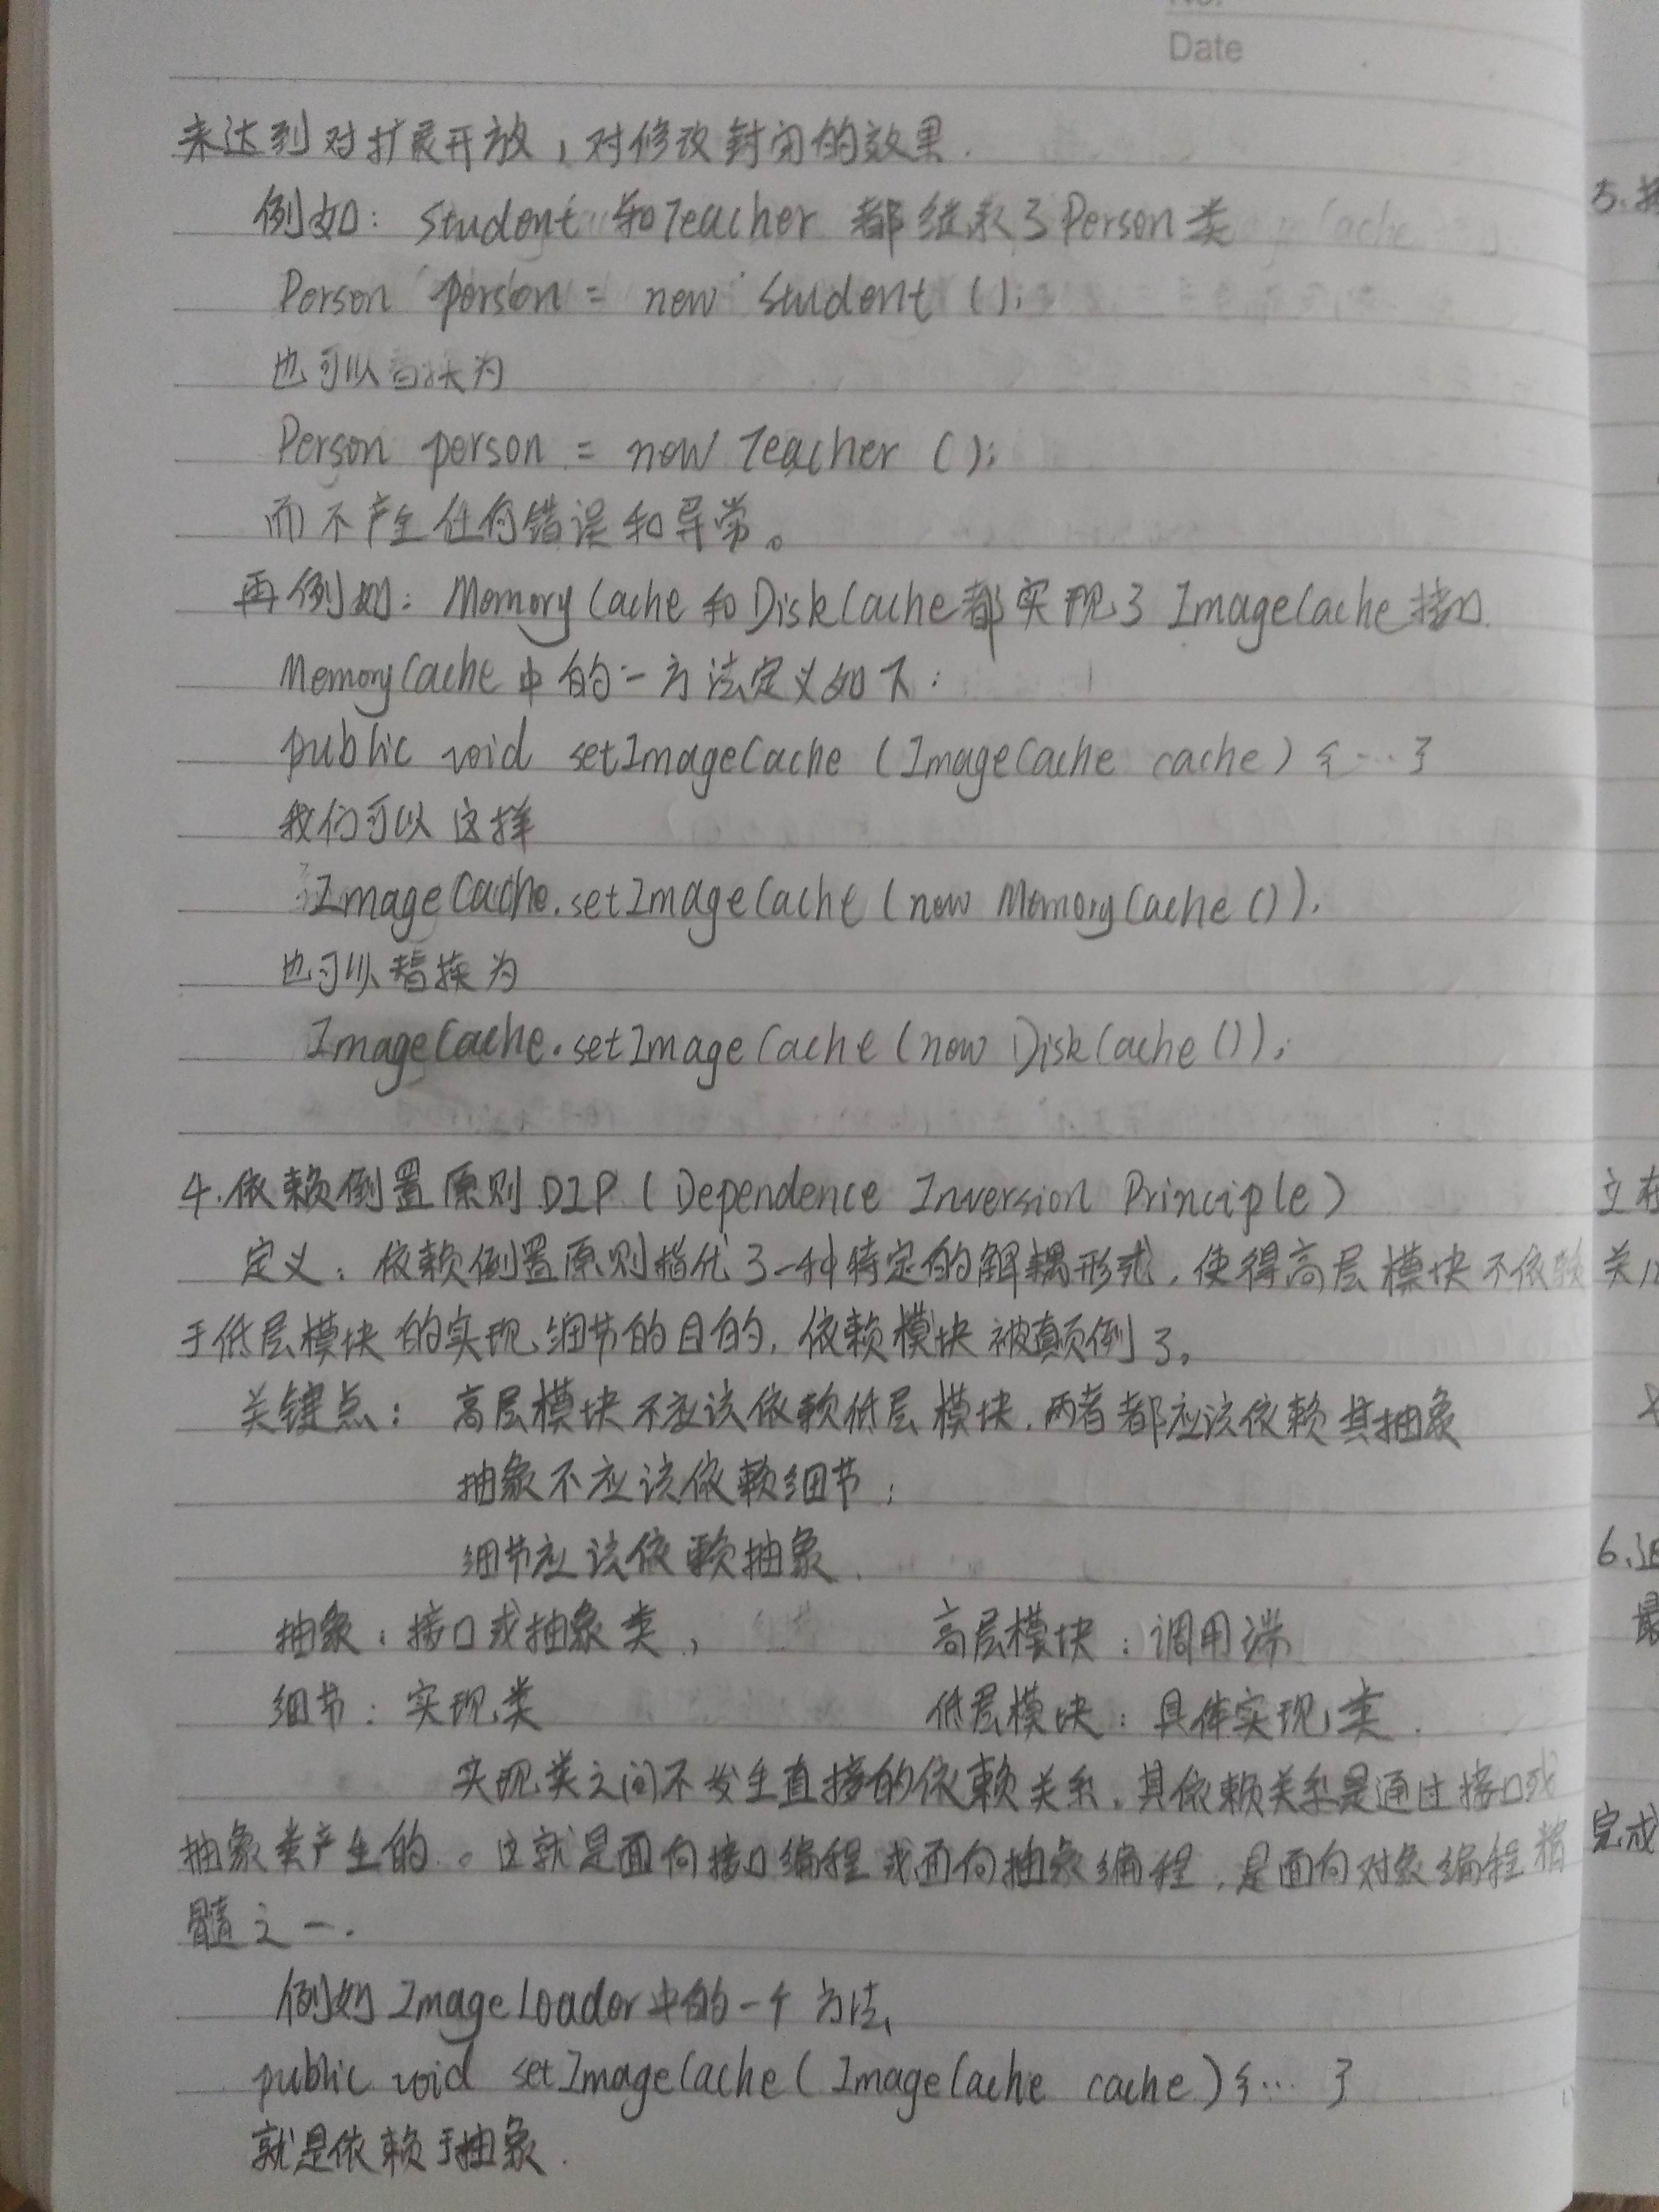 No.
Date
来达到对扩展开放，对修改封闭的效果.
例如：Student和Teacher 都继承了Person类
Person person = new Student ();
也可以替换为
Person person = new Teacher ();
而不产生任何错误和异常。
再例如：MemoryCache和DiskCache都实现了 ImageCache接口.
MemoryCache中的一方法定义如下：
public void setImageCache (ImageCache cache) {…}
我们可以这样
ImageCache.setImageCache (new MemoryCache ()).
也可以替换为
ImageCache.setImageCache (new DiskCache ());
4.依赖倒置原则 DIP ( Dependence Inversion Principle )
定义：依赖倒置原则指代了一种特定的解耦形式，使得高层模块不依赖
于低层模块的实现细节的目的，依赖模块被颠倒了。
关键点： 高层模块不应该依赖低层模块，两者都应该依赖其抽象
抽象不应该依赖细节；
细节应该依赖抽象.
抽象：接口或抽象类， 高层模块：调用端
细节：实现类 低层模块：具体实现类.
实现类之间不发生直接的依赖关系，其依赖关系是通过接口或
抽象类产生的。这就是面向接口编程或面向抽象编程，是面向对象编程精
髓之一.
例如 ImageLoader中的一个方法
public void setImageCache ( ImageCache cache) {… }
就是依赖于抽象.
5.接
立在
关
6.迪
最
完成